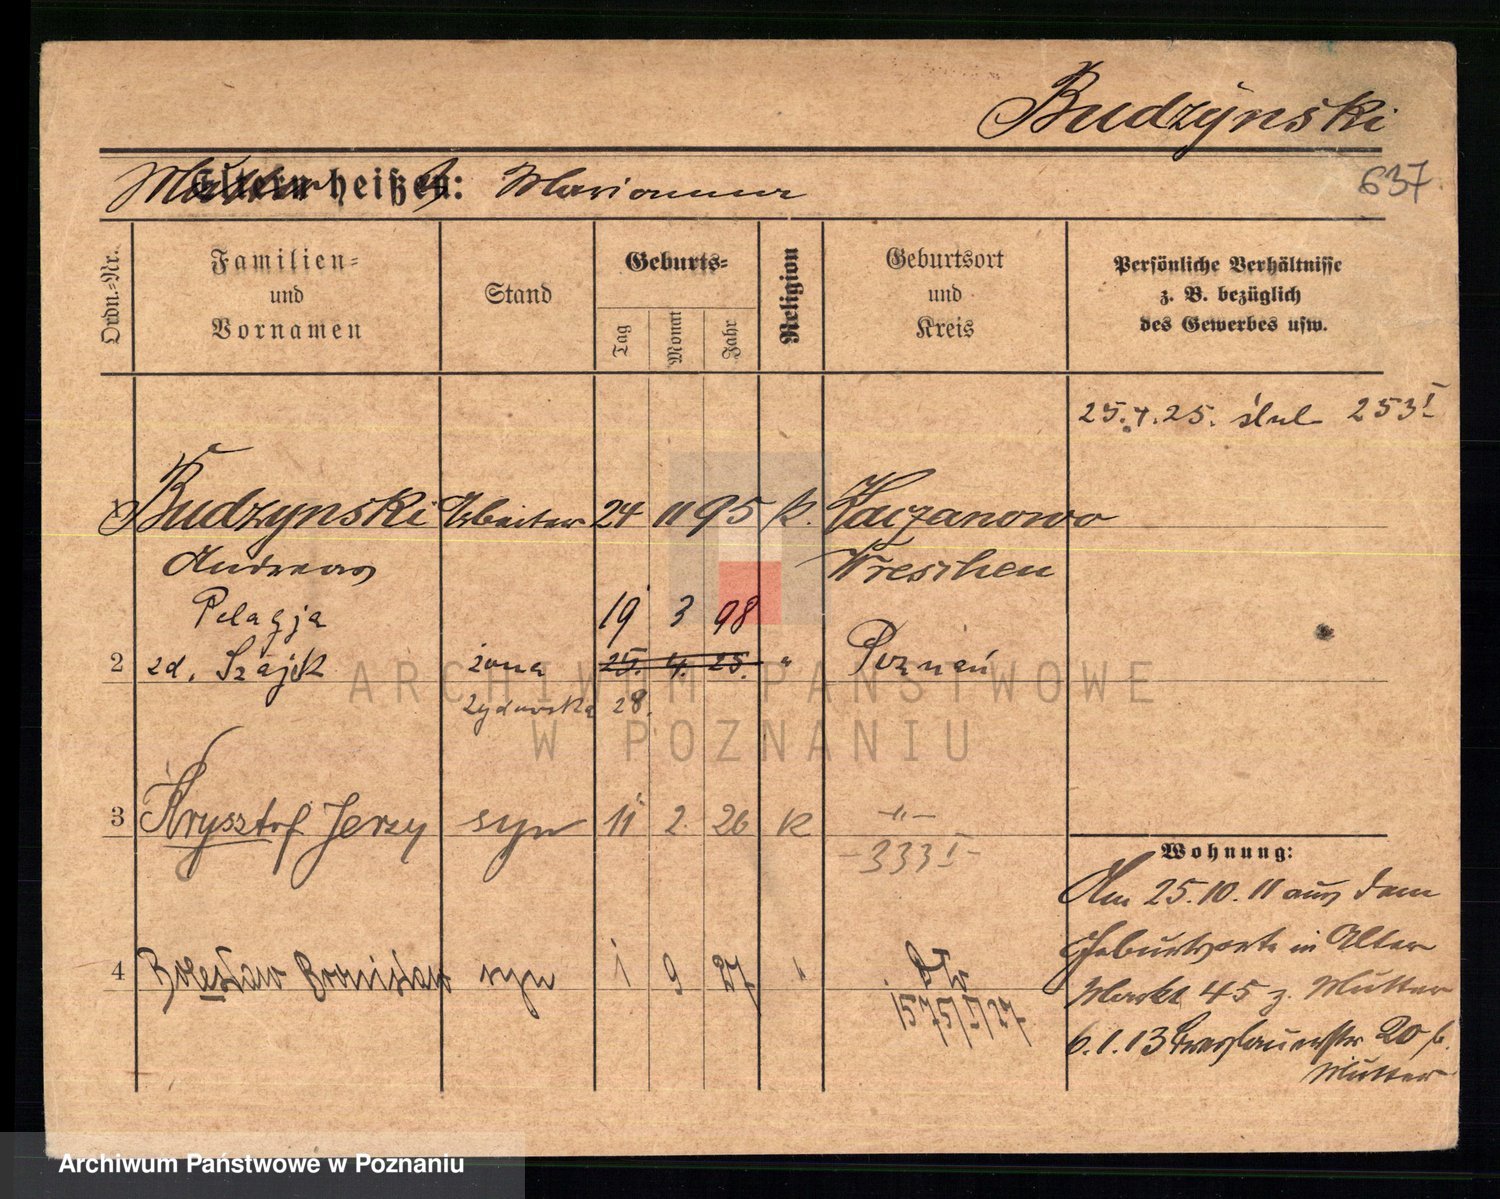 Budzynski
637
Mutter heißen: Marianna
Ordn.-Nr.
Familien-
und
Vornamen
Stand
Geburts-
Tag
Monat
Jahr
Religion
Geburtsort
und
Kreis
Persönliche Verhältnisse
z. B. bezüglich
des Gewerbes usw.
25.4.25. ślub 253 I
1 Budzynski Arbeiter 24 11 95 k. Kaczanowo
Andreas Wreschen
Pelagja 19 3 98
2 zd. Szajek żona 25. 4. 25. " Poznań
Żydowska 28.
3 Krysztof Jerzy syn 11 2. 26 k -"-
-333 I-
4 Bolesław Bronisław syn 1 9 27 "
1575/I/27
Wohnung:
Am 25.10.11 aus dem
Geburtsorte in Alter
Markt 45 z. Mutter
6.1.13 Breslauerstr 20 b.
Mutter
ARCHIWUM PAŃSTWOWE
W POZNANIU
Archiwum Państwowe w Poznaniu